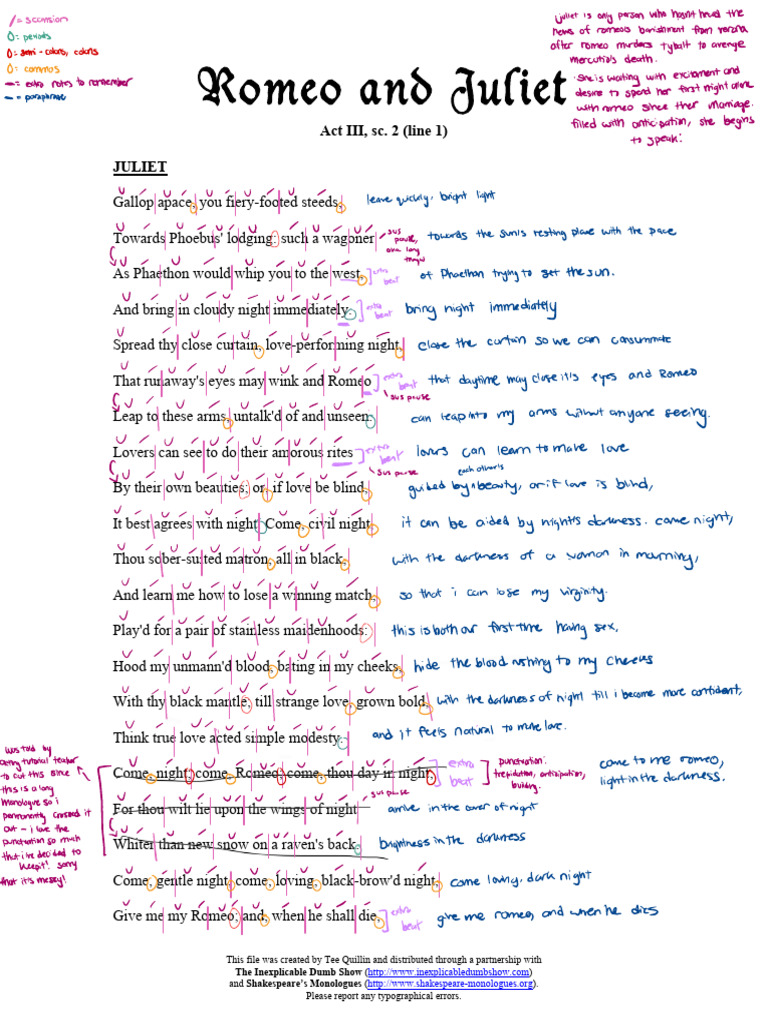 /= scansion
O= periods
O= semi-colons, colons
O= commas
—= extra notes to remember
—= paraphrase
juliet is only person who hasn't heard the
news of romeo's banishment from verona
after romeo murders tybalt to avenge
mercutio's death.
She is waiting with excitement and
desire to spend her first night alone
with romeo since their marriage.
filled with anticipation, she begins
to speak:
Romeo and Juliet
Act III, sc. 2 (line 1)
JULIET
Gallop apace, you fiery-footed steeds, leave quickly, bright light
Towards Phoebus' lodging: such a wagoner sus pause, towards the sun's resting place with the pace
As Phaethon would whip you to the west, extra beat of Phaethon trying to get the sun.
And bring in cloudy night immediately. extra beat bring night immediately
Spread thy close curtain, love-performing night, close the curtain so we can consummate
That runaway's eyes may wink and Romeo extra beat that daytime may close it's eyes and Romeo
sus pause
Leap to these arms, untalk'd of and unseen. can leap into my arms without anyone seeing.
Lovers can see to do their amorous rites extra beat lovers can learn to make love
sus pause
By their own beauties; or, if love be blind, guided by each other's beauty, or if love is blind,
It best agrees with night. Come, civil night, it can be aided by night's darkness. come night,
Thou sober-suited matron, all in black, with the darkness of a woman in mourning,
And learn me how to lose a winning match, so that i can lose my virginity.
Play'd for a pair of stainless maidenhoods: this is both our first time having sex,
Hood my unmann'd blood, bating in my cheeks, hide the blood rushing to my cheeks
With thy black mantle; till strange love, grown bold, with the darkness of night till i become more confident,
Think true love acted simple modesty. and it feels natural to make love.
was told by
acting tutorial teacher
to cut this since
this is a long
monologue so i
permanently crossed it
out - i love the
punctuation so much
that i've decided to
keep it! sorry
that it's messy!
Come, night; come, Romeo; come, thou day in night; extra beat punctuation: trepidation, anticipation, building. come to me romeo, light in the darkness.
sus pause
For thou wilt lie upon the wings of night arrive in the cover of night
Whiter than new snow on a raven's back. brightness in the darkness
Come, gentle night, come, loving, black-brow'd night, come loving, dark night
Give me my Romeo; and, when he shall die, extra beat give me romeo, and when he dies
This file was created by Tee Quillin and distributed through a partnership with
The Inexplicable Dumb Show (http://www.inexplicabledumbshow.com)
and Shakespeare's Monologues (http://www.shakespeare-monologues.org).
Please report any typographical errors.